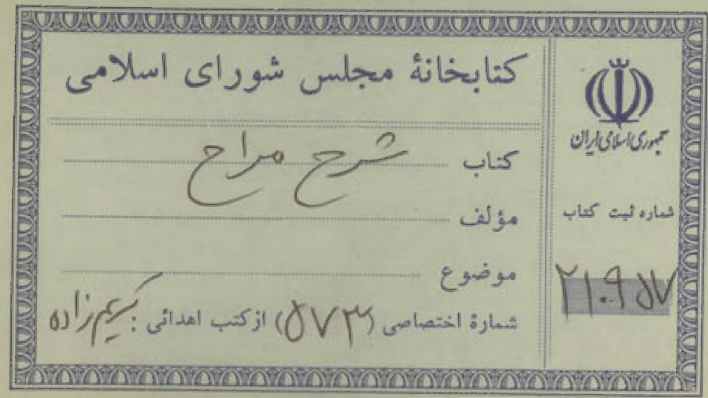 کتابخانهٔ مجلس شورای اسلامی
کتاب شرح مراح
مؤلف
موضوع
شمارهٔ اختصاصی (۵۷۳) از کتب اهدائی : کریم‌زاده
جمهوری اسلامی ایران
شماره ثبت کتاب
۲۱۰۹۵۷